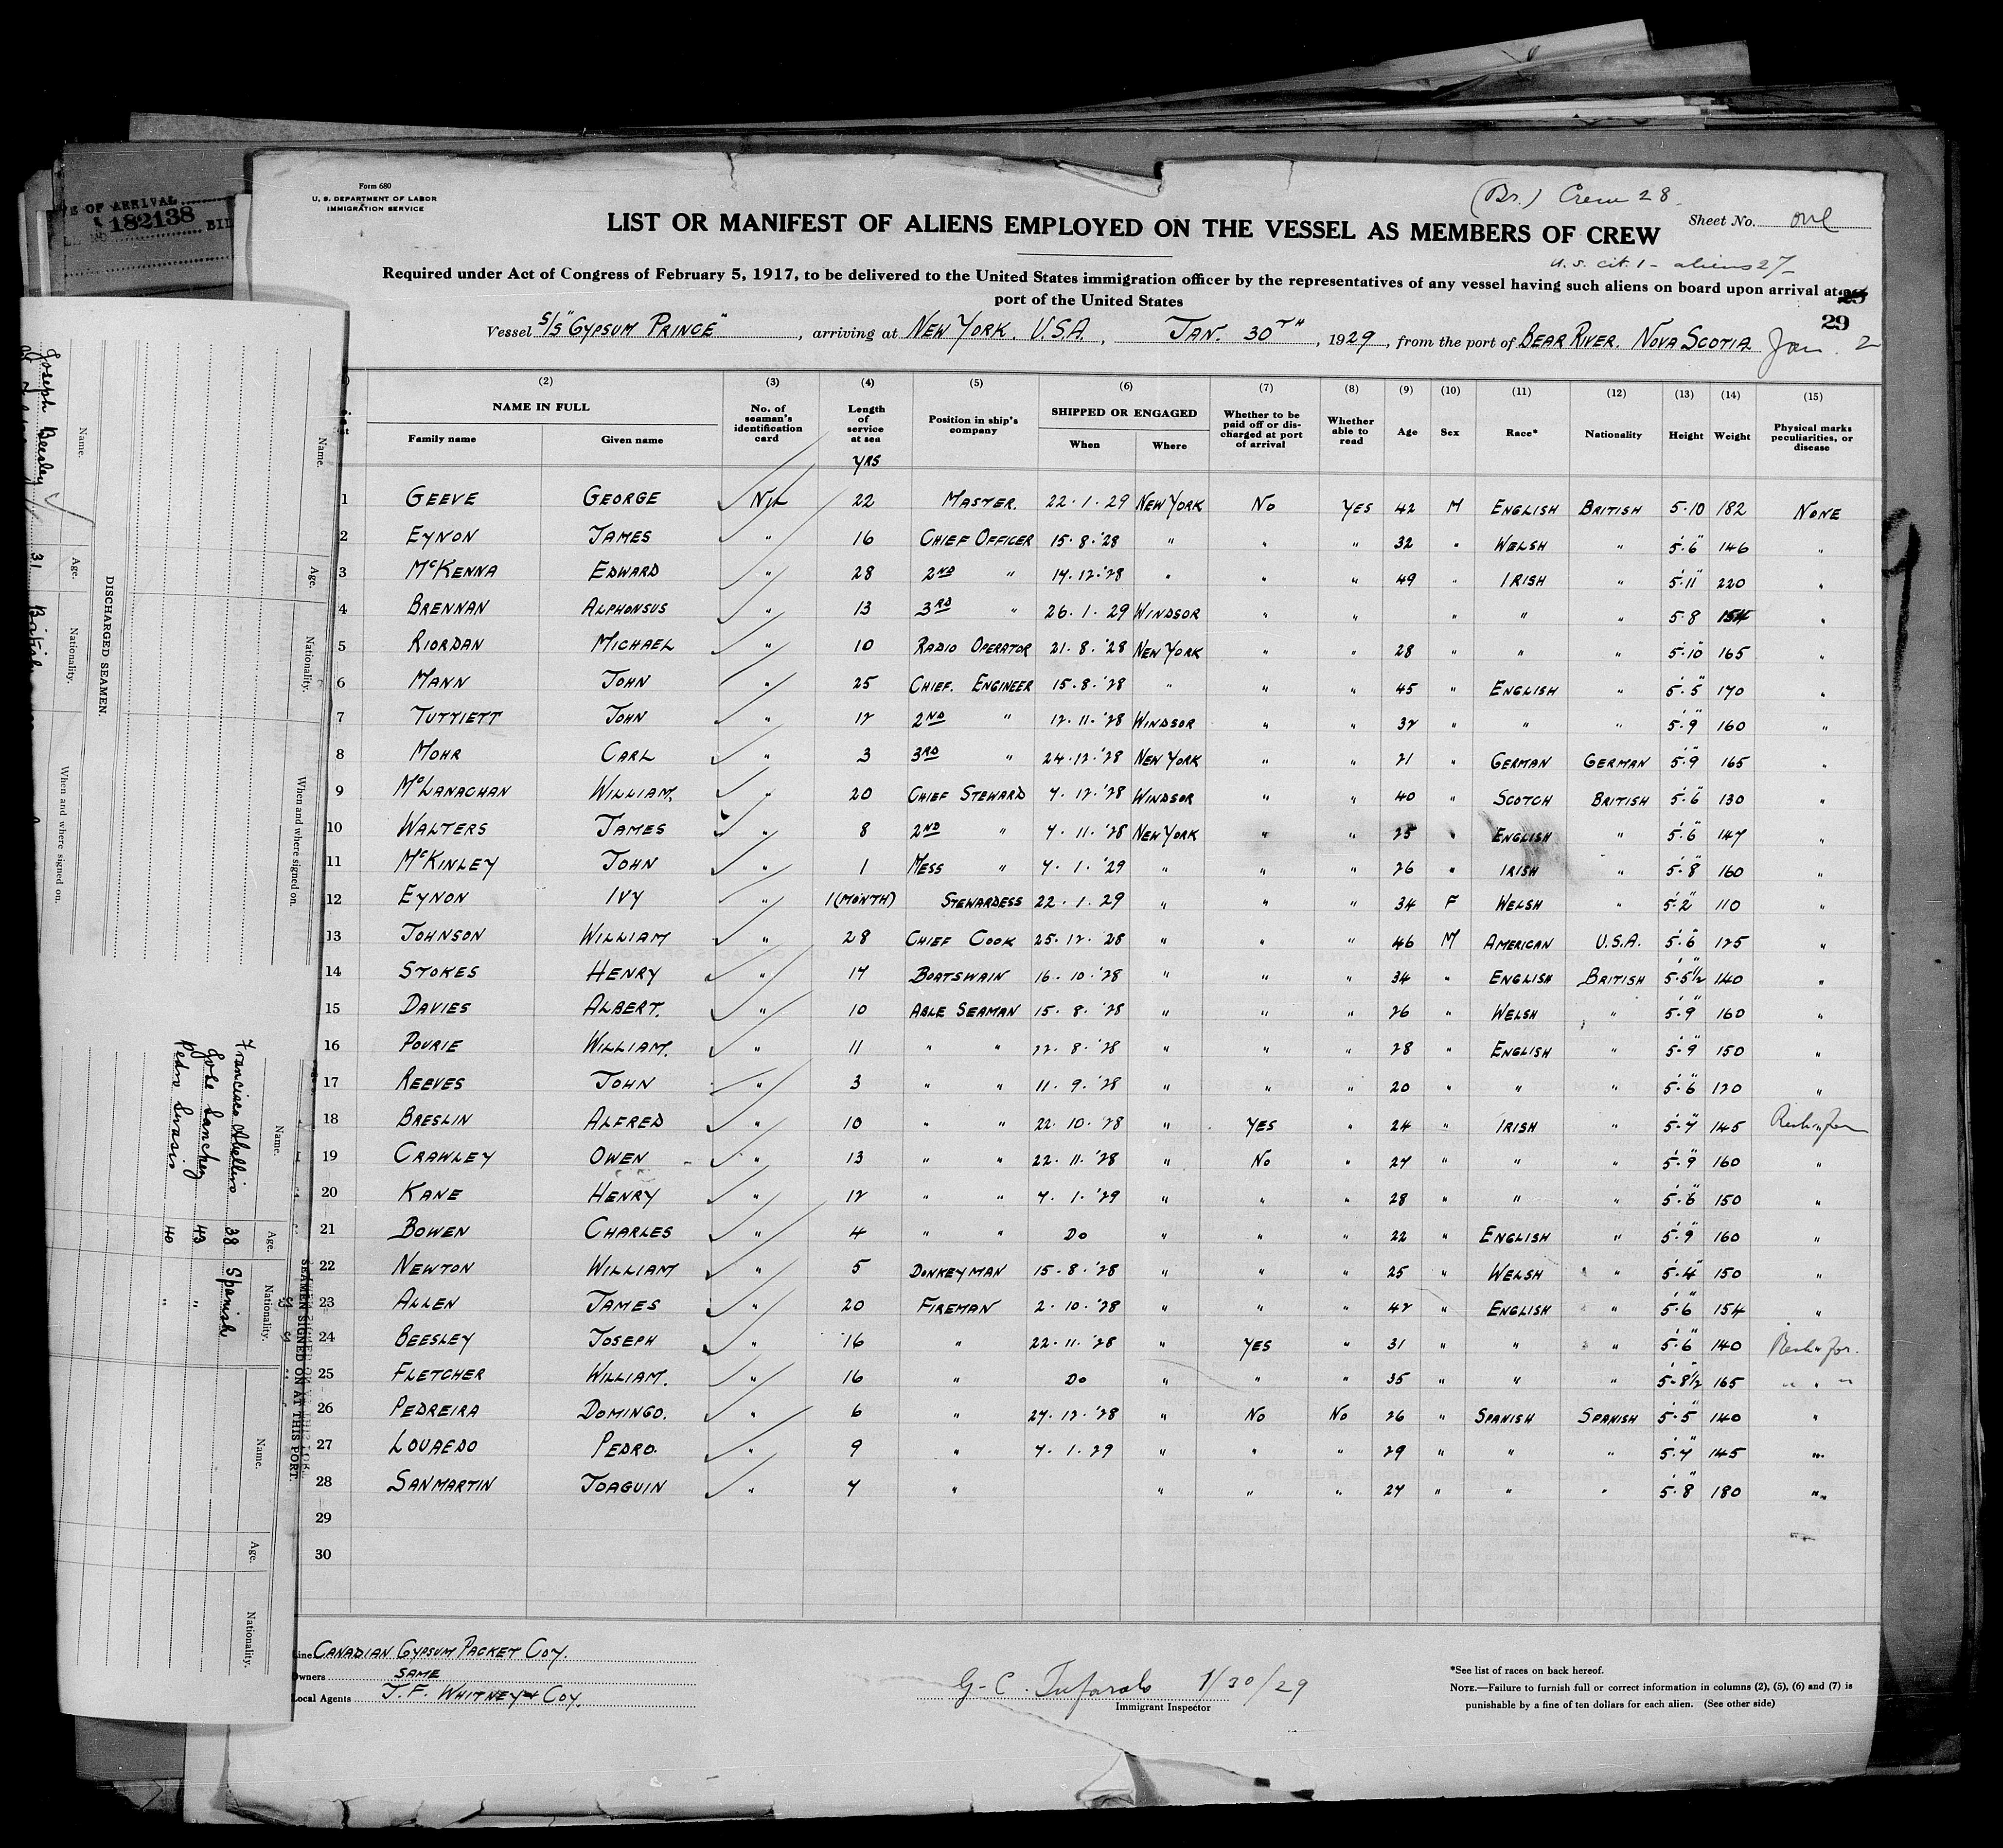 Form 680
U. S. DEPARTMENT OF LABOR
IMMIGRATION SERVICE
(Br.) Crew 28
Sheet No. one
LIST OR MANIFEST OF ALIENS EMPLOYED ON THE VESSEL AS MEMBERS OF CREW
U.S. cit. 1 - aliens 27
Required under Act of Congress of February 5, 1917, to be delivered to the United States immigration officer by the representatives of any vessel having such aliens on board upon arrival at
port of the United States
29
Vessel S/S "GYPSUM PRINCE", arriving at NEW YORK. U.S.A., JAN. 30TH, 1929, from the port of BEAR RIVER. NOVA SCOTIA Jan. 2
(2) (3) (4) (5) (6) (7) (8) (9) (10) (11) (12) (13) (14) (15)
NAME IN FULL Family name Given name No. of seaman's identification card Length of service at sea Position in ship's company SHIPPED OR ENGAGED When Where Whether to be paid off or discharged at port of arrival Whether able to read Age Sex Race* Nationality Height Weight Physical marks peculiarities, or disease
YRS
1 GEEVE GEORGE NIL 22 MASTER. 22.1.29 NEW YORK NO YES 42 M ENGLISH BRITISH 5-10 182 NONE
2 EYNON JAMES " 16 CHIEF OFFICER 15-8-'28 " " " 32 " WELSH " 5'-6" 146 "
3 McKENNA EDWARD " 28 2ND " 14-12-'28 " " " 49 " IRISH " 5'-11" 220 "
4 BRENNAN ALPHONSUS " 13 3RD " 26.1.29 WINDSOR " " " " " 5-8 154 "
5 RIORDAN MICHAEL " 10 RADIO OPERATOR 21.8.'28 NEW YORK " " 28 " " " 5'-10" 165 "
6 MANN JOHN " 25 CHIEF. ENGINEER 15-8-'28 " " " 45 " ENGLISH " 5'-5" 170 "
7 TUTTIETT JOHN " 12 2ND " 12.11.'28 WINDSOR " " 32 " " " 5'-9" 160 "
8 MOHR CARL " 3 3RD " 24-12-'28 NEW YORK " " 21 " GERMAN GERMAN 5'-9" 165 "
9 McLANACHAN WILLIAM. " 20 CHIEF STEWARD 7.12.'28 WINDSOR " " 40 " SCOTCH BRITISH 5'-6" 130 "
10 WALTERS JAMES " 8 2ND " 7.11.'28 NEW YORK " " 25 " ENGLISH " 5'-6" 147 "
11 McKINLEY JOHN " 1 MESS " 7.1.'29 " " " 26 " IRISH " 5'-8" 160 "
12 EYNON IVY " 1 (MONTH) STEWARDESS 22.1.29 " " " 34 F WELSH " 5'-2" 110 "
13 JOHNSON WILLIAM " 28 CHIEF COOK 25.12.28 " " " 46 M AMERICAN U.S.A. 5'-6" 125 "
14 STOKES HENRY " 17 BOATSWAIN 16.10.'28 " " " 34 " ENGLISH BRITISH 5-5½ 140 "
15 DAVIES ALBERT. " 10 ABLE SEAMAN 15.8.'28 " " " 26 " WELSH " 5'-9" 160 "
16 POURIE WILLIAM. " 11 " " 22.8.'28 " " " 28 " ENGLISH " 5'-9" 150 "
17 REEVES JOHN " 3 " " 11.9.'28 " " " 20 " " " 5'-6" 120 "
18 BRESLIN ALFRED " 10 " " 22.10.'28 " YES " 24 " IRISH " 5'-7" 145
19 CRAWLEY OWEN " 13 " " 22.11.'28 " NO " 27 " " " 5'-9" 160 "
20 KANE HENRY " 12 " " 7.1.'29 " " " 28 " " " 5'-6" 150 "
21 BOWEN CHARLES " 4 " " DO " " " 22 " ENGLISH " 5'-9" 160 "
22 NEWTON WILLIAM " 5 DONKEYMAN 15.8.'28 " " " 25 " WELSH " 5'-4" 150 "
23 ALLEN JAMES " 20 FIREMAN 2.10.'28 " " " 42 " ENGLISH " 5'-6" 154 "
24 BEESLEY JOSEPH " 16 " 22.11.'28 " YES " 31 " " " 5'-6" 140
25 FLETCHER WILLIAM. " 16 " DO " " " 35 " " " 5-8½ 165 " " "
26 PEDREIRA DOMINGO. " 6 " 27.12.'28 " NO NO 26 " SPANISH SPANISH 5'-5" 140 "
27 LOUAEDO PEDRO. " 9 " 7.1.29 " " " 29 " " " 5'-7" 145 "
28 SANMARTIN JOAGUIN " 7 " " " " 27 " " " 5'-8" 180 "
29
30
Line CANADIAN GYPSUM PACKET COY.
Owners SAME
Local Agents J.F. WHITNEY & COY.
G. C. 1/30/29
Immigrant Inspector
*See list of races on back hereof.
NOTE.—Failure to furnish full or correct information in columns (2), (5), (6) and (7) is
punishable by a fine of ten dollars for each alien. (See other side)
OF ARRIVAL
182138
BIL
DISCHARGED SEAMEN.
Name. Age. Nationality. When and where signed on.
Joseph Beesley 31 British
Name. Age. Nationality. When and where signed on.
SEAMEN SIGNED ON AT THIS PORT.
Name. Age. Nationality.
Francisco Abellino 38 Spanish
Jose Sanchez 43 "
Pedro 40 "
Name. Age. Nationality.